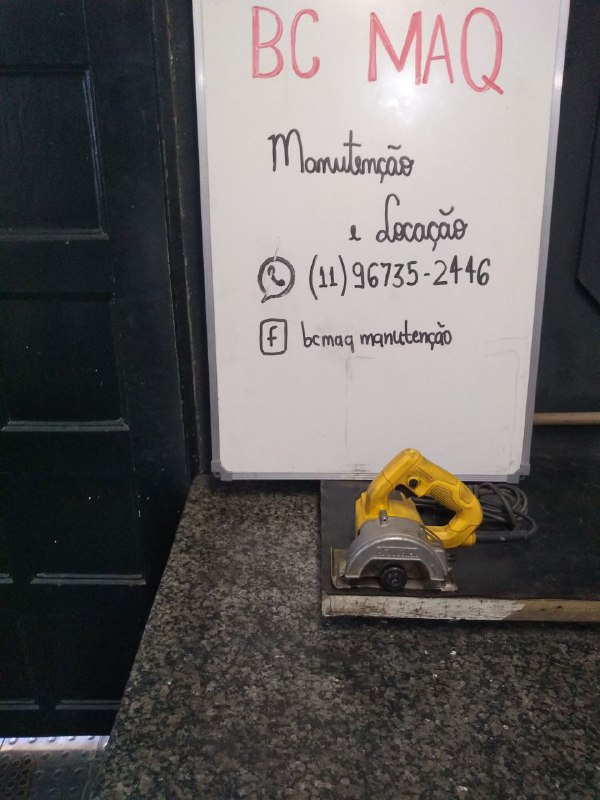 BC MAQ
Manutenção
e Locação
(11) 96735-2446
f bcmaq manutenção